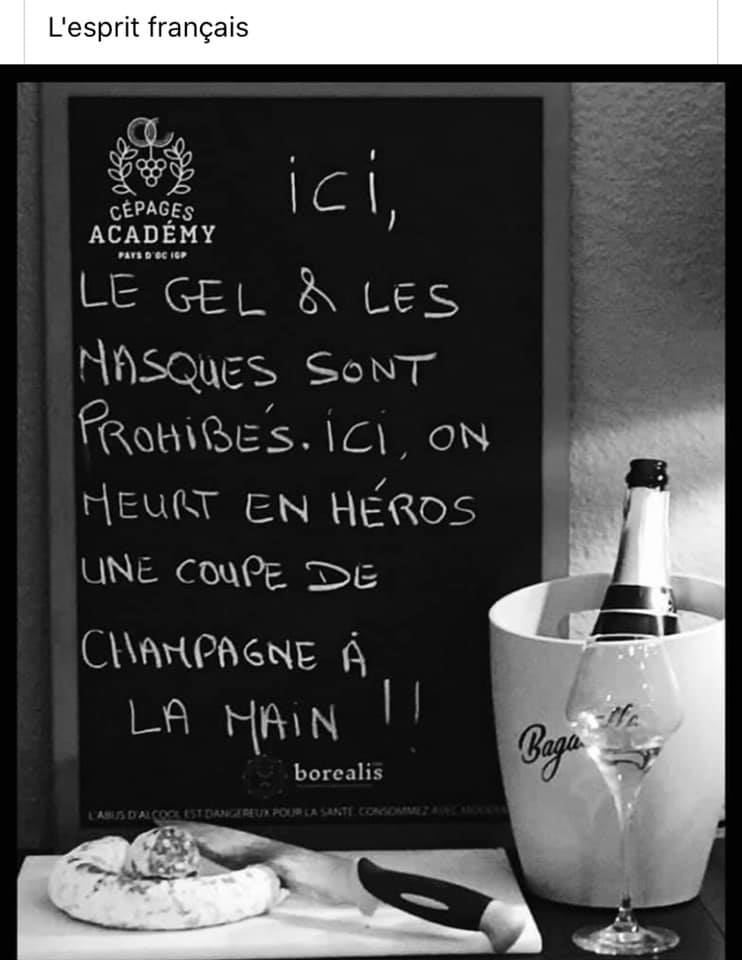 L'esprit français
CÉPAGES
ACADÉMY
PAYS D'OC IGP
ici,
LE GEL & LES
MASQUES SONT
PROHIBÉS. ICI, ON
MEURT EN HÉROS
UNE COUPE DE
CHAMPAGNE À
LA MAIN !!
borealis
L'ABUS D'ALCOOL EST DANGEREUX POUR LA SANTÉ. CONSOMMEZ AVEC